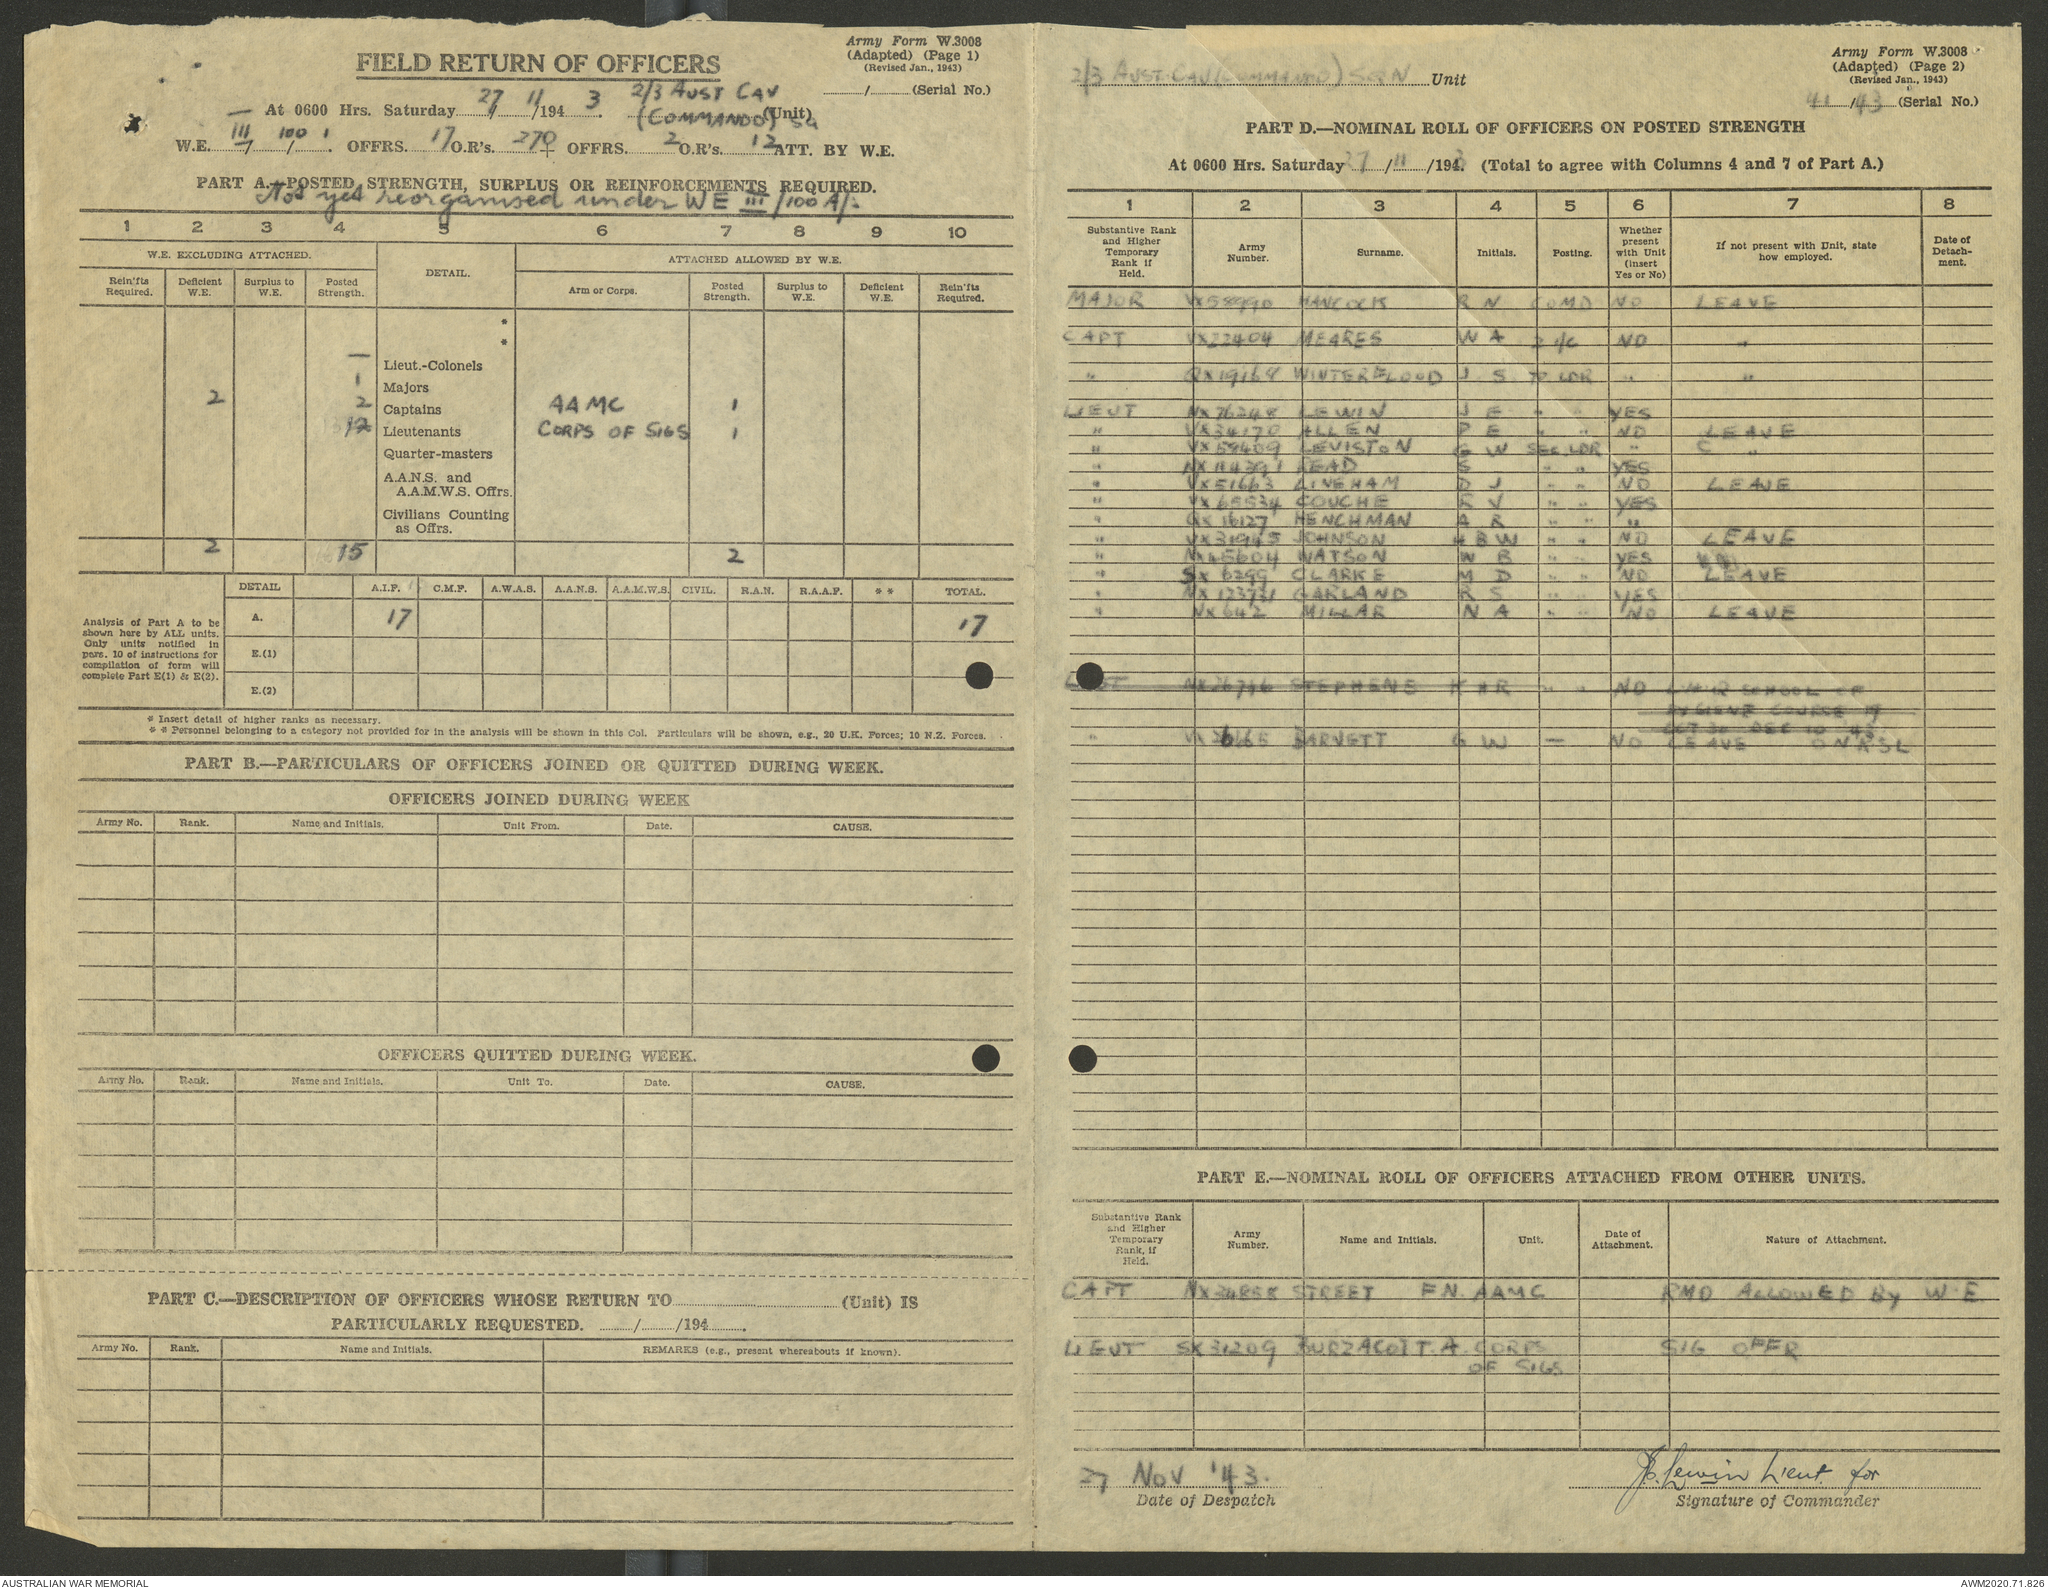 Army Form W.3008
(Adapted) (Page 1)
(Revised Jan., 1943)
FIELD RETURN OF OFFICERS
/ (Serial No.)
— At 0600 Hrs. Saturday 27/11/1943 2/3 AUST CAV
(COMMANDO) SQ (Unit)
W.E. III/100/1. OFFRS. 17 O.R's. 270 + OFFRS. 2 O.R's. 12 ATT. BY W.E.
PART A.—POSTED STRENGTH, SURPLUS OR REINFORCEMENTS REQUIRED.
Not yet reorganised under WE III/100A/-
1 2 3 4 5 6 7 8 9 10
W.E. EXCLUDING ATTACHED. DETAIL. ATTACHED ALLOWED BY W.E.
Rein'fts Required. Deficient W.E. Surplus to W.E. Posted Strength. Arm or Corps. Posted Strength. Surplus to W.E. Deficient W.E. Rein'fts Required.
*
*
— Lieut.-Colonels
1 Majors
2 2 Captains AAMC 1
12 Lieutenants CORPS OF SIGS 1
Quarter-masters
A.A.N.S. and
A.A.M.W.S. Offrs.
Civilians Counting
as Offrs.
2 15 2
Analysis of Part A to be shown here by ALL units. Only units notified in para. 10 of instructions for compilation of form will complete Part E(1) & E(2).
DETAIL A.I.F. C.M.F. A.W.A.S. A.A.N.S. A.A.M.W.S. CIVIL. R.A.N. R.A.A.F. ** TOTAL.
A. 17 17
E.(1)
E.(2)
* Insert detail of higher ranks as necessary.
** Personnel belonging to a category not provided for in the analysis will be shown in this Col. Particulars will be shown, e.g., 20 U.K. Forces; 10 N.Z. Forces.
PART B.—PARTICULARS OF OFFICERS JOINED OR QUITTED DURING WEEK.
OFFICERS JOINED DURING WEEK
Army No. Rank. Name and Initials. Unit From. Date. CAUSE.
OFFICERS QUITTED DURING WEEK.
Army No. Rank. Name and Initials. Unit To. Date. CAUSE.
PART C.—DESCRIPTION OF OFFICERS WHOSE RETURN TO (Unit) IS
PARTICULARLY REQUESTED. / /194 .
Army No. Rank. Name and Initials. REMARKS (e.g., present whereabouts if known).
Army Form W.3008
(Adapted) (Page 2)
(Revised Jan., 1943)
2/3 AUST CAV (COMMANDO) SQN Unit
41/43 (Serial No.)
PART D.—NOMINAL ROLL OF OFFICERS ON POSTED STRENGTH
At 0600 Hrs. Saturday 27/11/1943. (Total to agree with Columns 4 and 7 of Part A.)
1 2 3 4 5 6 7 8
Substantive Rank and Higher Temporary Rank if Held. Army Number. Surname. Initials. Posting. Whether present with Unit (insert Yes or No) If not present with Unit, state how employed. Date of Detach-ment.
MAJOR VX58990 HANCOCK R N COMD NO LEAVE
CAPT VX22404 MEARES W A 2 i/c NO "
" QX19168 WINTERFLOOD J S TP LDR " "
LIEUT NX76248 LEWIN J E " " YES
" VX34170 ALLEN P E " " NO LEAVE
" VX59409 LEVISTON G W SEC LDR " "
" NX114391 READ S " " YES
" VX51663 LINEHAM D J " " NO LEAVE
" VX65534 COUCHE R V " " YES
" QX16127 HENCHMAN A R " " "
" VX31945 JOHNSON H B W " " NO LEAVE
" NX45604 WATSON W B " " YES
" SX6299 CLARKE M D " " NO LEAVE
" NX123731 GARLAND R S " " YES
" NX642 MILLAR N A " " NO LEAVE
LIEUT NX76766 STEPHENE K H R " " NO LHQ SCHOOL OF
HYGIENE COURSE 19
OCT 30 DEC 10 '43
" BARNETT G W — NO LEAVE ON RSL
PART E.—NOMINAL ROLL OF OFFICERS ATTACHED FROM OTHER UNITS.
Substantive Rank and Higher Temporary Rank, if Held. Army Number. Name and Initials. Unit. Date of Attachment. Nature of Attachment.
CAPT NX34858 STREET F N. AAMC RMO ALLOWED BY W.E
LIEUT SX31209 BURZACOTT. A. CORPS SIG OFFR
OF SIGS
27 NOV '43.
Date of Despatch
J.E. Lewin Lieut for
Signature of Commander
AUSTRALIAN WAR MEMORIAL
AWM2020.71.826